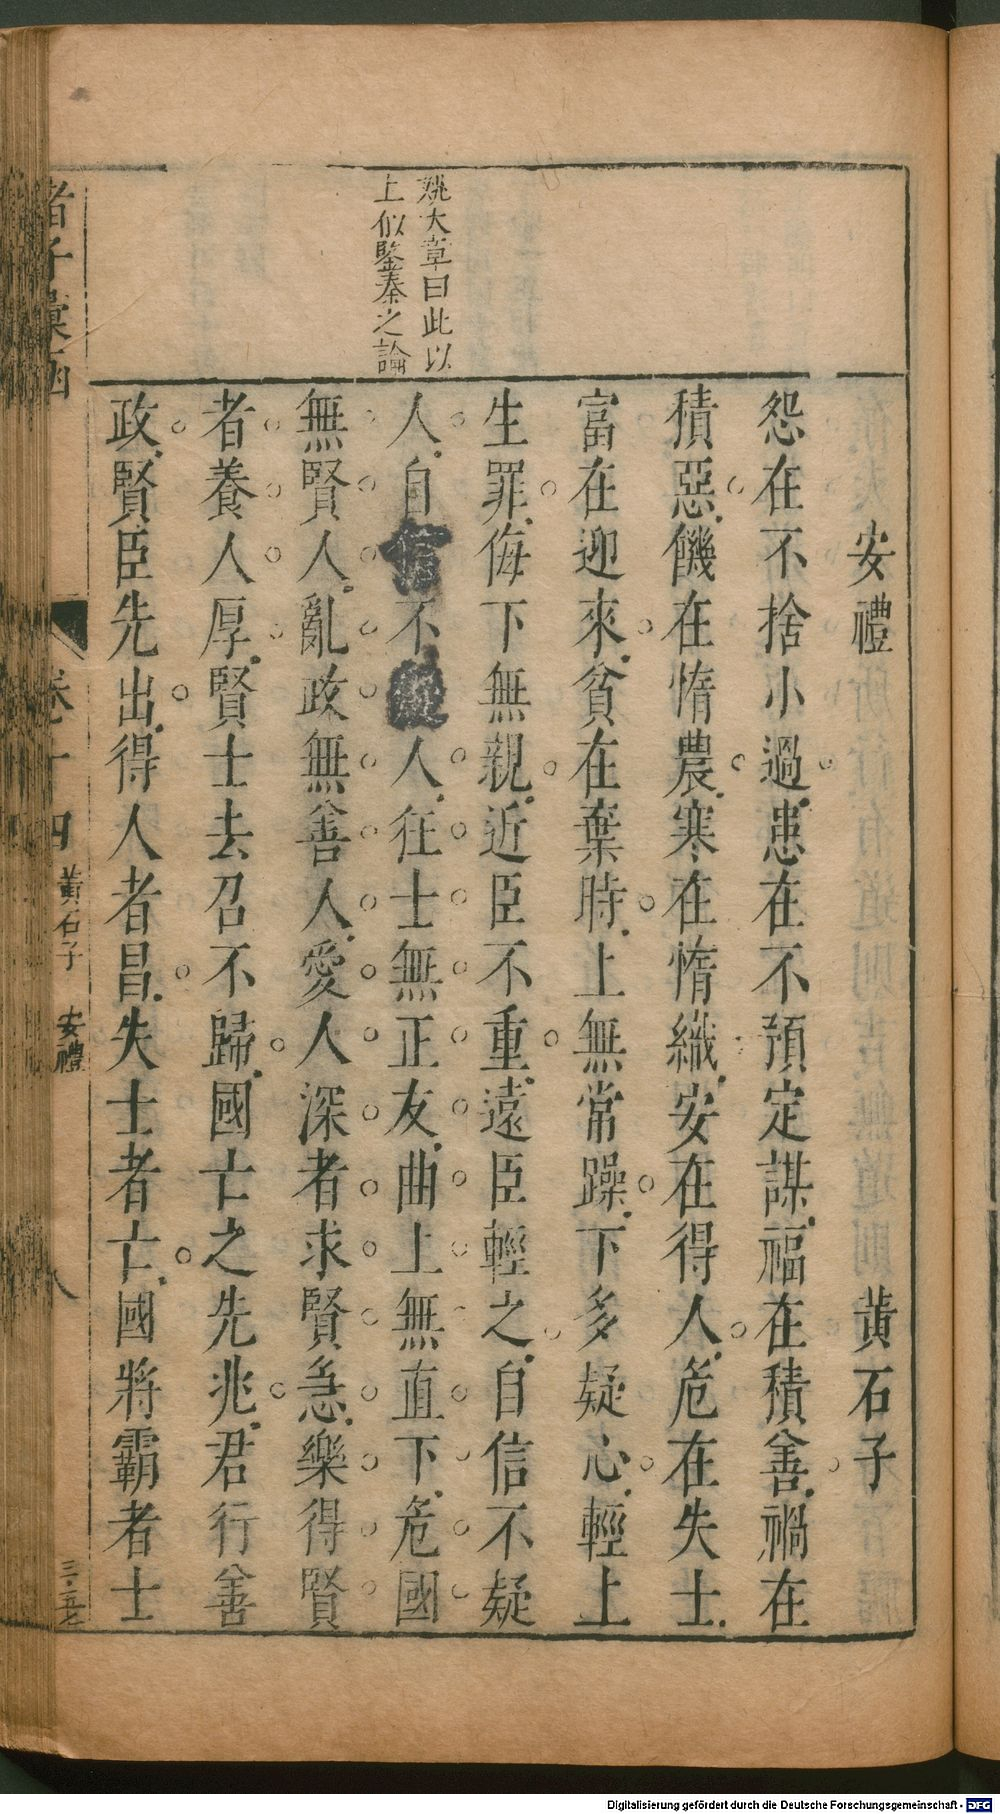 安禮 黃石子
姚大章曰此以
上似鑒秦之論
怨在不捨小過患在不預定謀福在積善禍在
積惡饑在惰農寒在惰織安在得人危在失士
富在迎來貧在棄時上無常躁下多疑心輕上
生罪侮下無親近臣不重遠臣輕之自信不疑
人自信不疑人往士無正友曲上無直下危國
無賢人亂政無善人愛人深者求賢急樂得賢
者養人厚賢士去召不歸國亡之先兆君行善
政賢臣先出得人者昌失士者亡國將霸者士
諸子彙函 卷十四 黃石子 安禮 八 三・五七
Digitalisierung gefördert durch die Deutsche Forschungsgemeinschaft - DFG